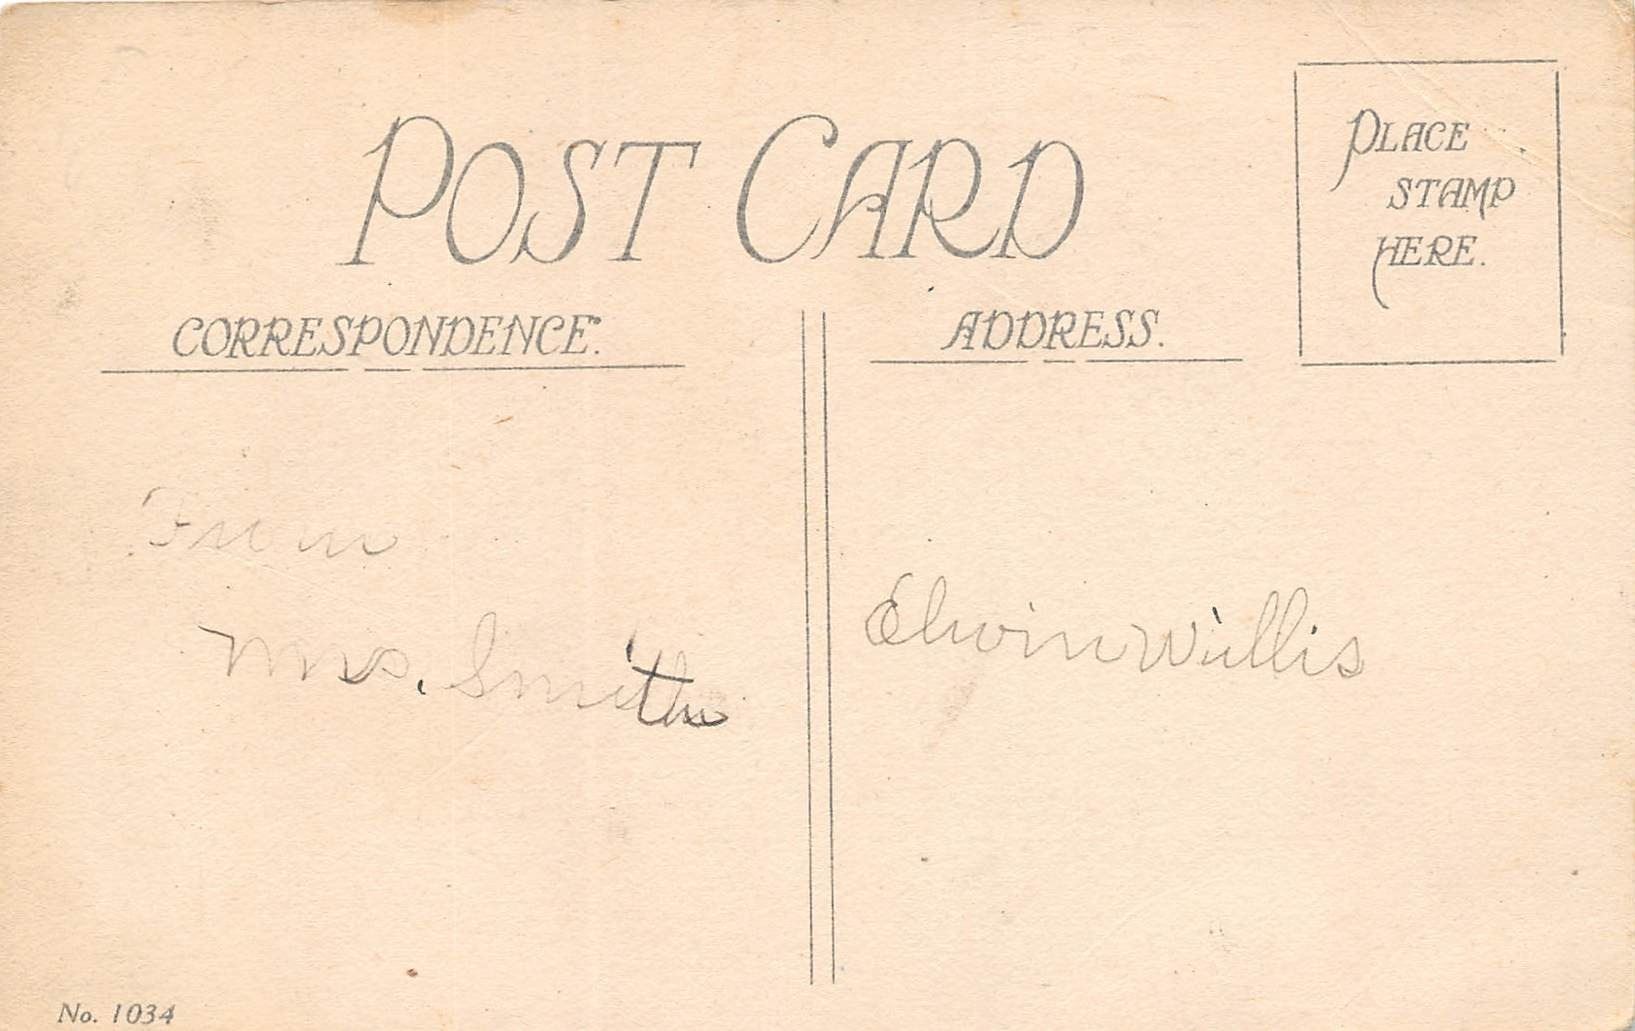 POST CARD
PLACE
STAMP
HERE.
CORRESPONDENCE.
ADDRESS.
From
Mrs. Smith
Elwin Willis
No. 1034